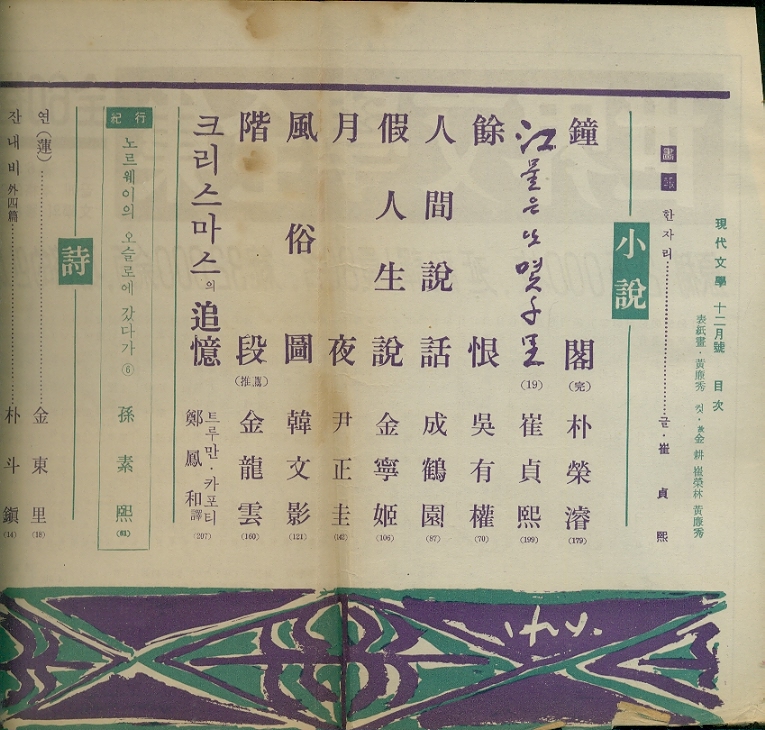 現代文學 十二月號 目次
表紙畫·黃廉秀 컷·金耕 崔榮林 黃廉秀
畫報 한자리 글·崔貞熙
小說
鐘閣(完) 朴榮濬(179)
江물은 또 몇 千里(19) 崔貞熙(199)
餘恨 吳有權(70)
人間說話 成鶴園(87)
假人生說 金寧姬(106)
月夜 尹正圭(142)
風俗圖 韓文影(121)
階段(推薦) 金龍雲(160)
크리스마스의 追憶 트루만·카포티 鄭鳳和譯(207)
紀行 노르웨이의 오슬로에 갔다가⑥ 孫素熙
詩
연(蓮) 金東里(18)
잔내비 外四篇 朴斗鎭(14)